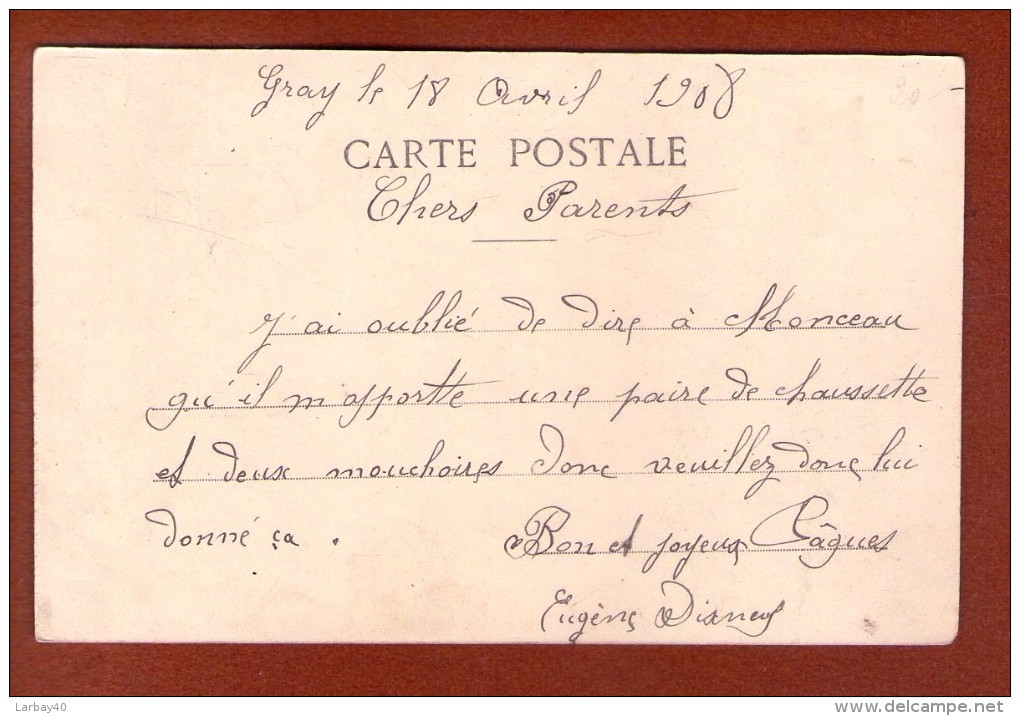 Gray le 18 Avril 1908
20
CARTE POSTALE
Chers Parents
J'ai oublié de dire à Monceau
qu'il m'apportte une paire de chaussette
et deux mouchoires donc veuillez donc lui
donné ça .
Bon et joyeux Pâques
Eugène
Larbay40
delcampe.net